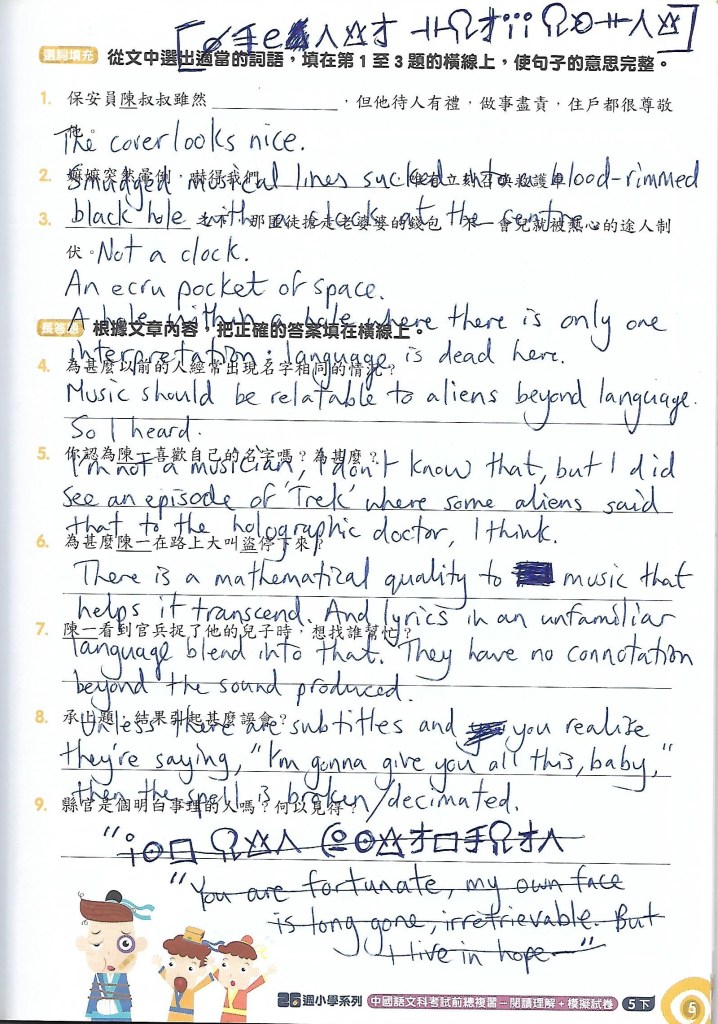 選詞填充 從文中選出適當的詞語，填在第 1 至 3 題的橫線上，使句子的意思完整。
1. 保安員陳叔叔雖然 ，但他待人有禮，做事盡責，住戶都很尊敬
The cover looks nice.
2. 嫲嫲突然暈倒，嚇得我們
Smudged musical lines sucked into a blood-rimmed
3. 那匪徒搶走老婆婆的錢包，不一會兒就被熱心的途人制
black hole with a clock at the centre.
伏。
Not a clock.
An ecru pocket of space.
A hole within a hole where there is only one
長答題 根據文章內容，把正確的答案填在橫線上。
interpretation: language is dead here.
4. 為甚麼以前的人經常出現名字相同的情況？
Music should be relatable to aliens beyond language.
So I heard.
5. 你認為陳一喜歡自己的名字嗎？為甚麼？
I'm not a musician, I don't know that, but I did
see an episode of 'Trek' where some aliens said
that to the holographic doctor, I think.
6. 為甚麼陳一在路上大叫盜停下來？
There is a mathematical quality to music that
helps it transcend. And lyrics in an unfamiliar
7. 陳一看到官兵捉了他的兒子時，想找誰幫忙？
language blend into that. They have no connotation
beyond the sound produced.
8. 承上題，結果引起甚麼誤會？
Unless there are subtitles and you realise
they're saying, "I'm gonna give you all this, baby,"
then the spell is broken/decimated.
9. 縣官是個明白事理的人嗎？何以見得？
"You are fortunate, my own face
is long gone, irretrievable. But
I live in hope."
26週小學系列 中國語文科考試前總複習－閱讀理解＋模擬試卷 5下 5